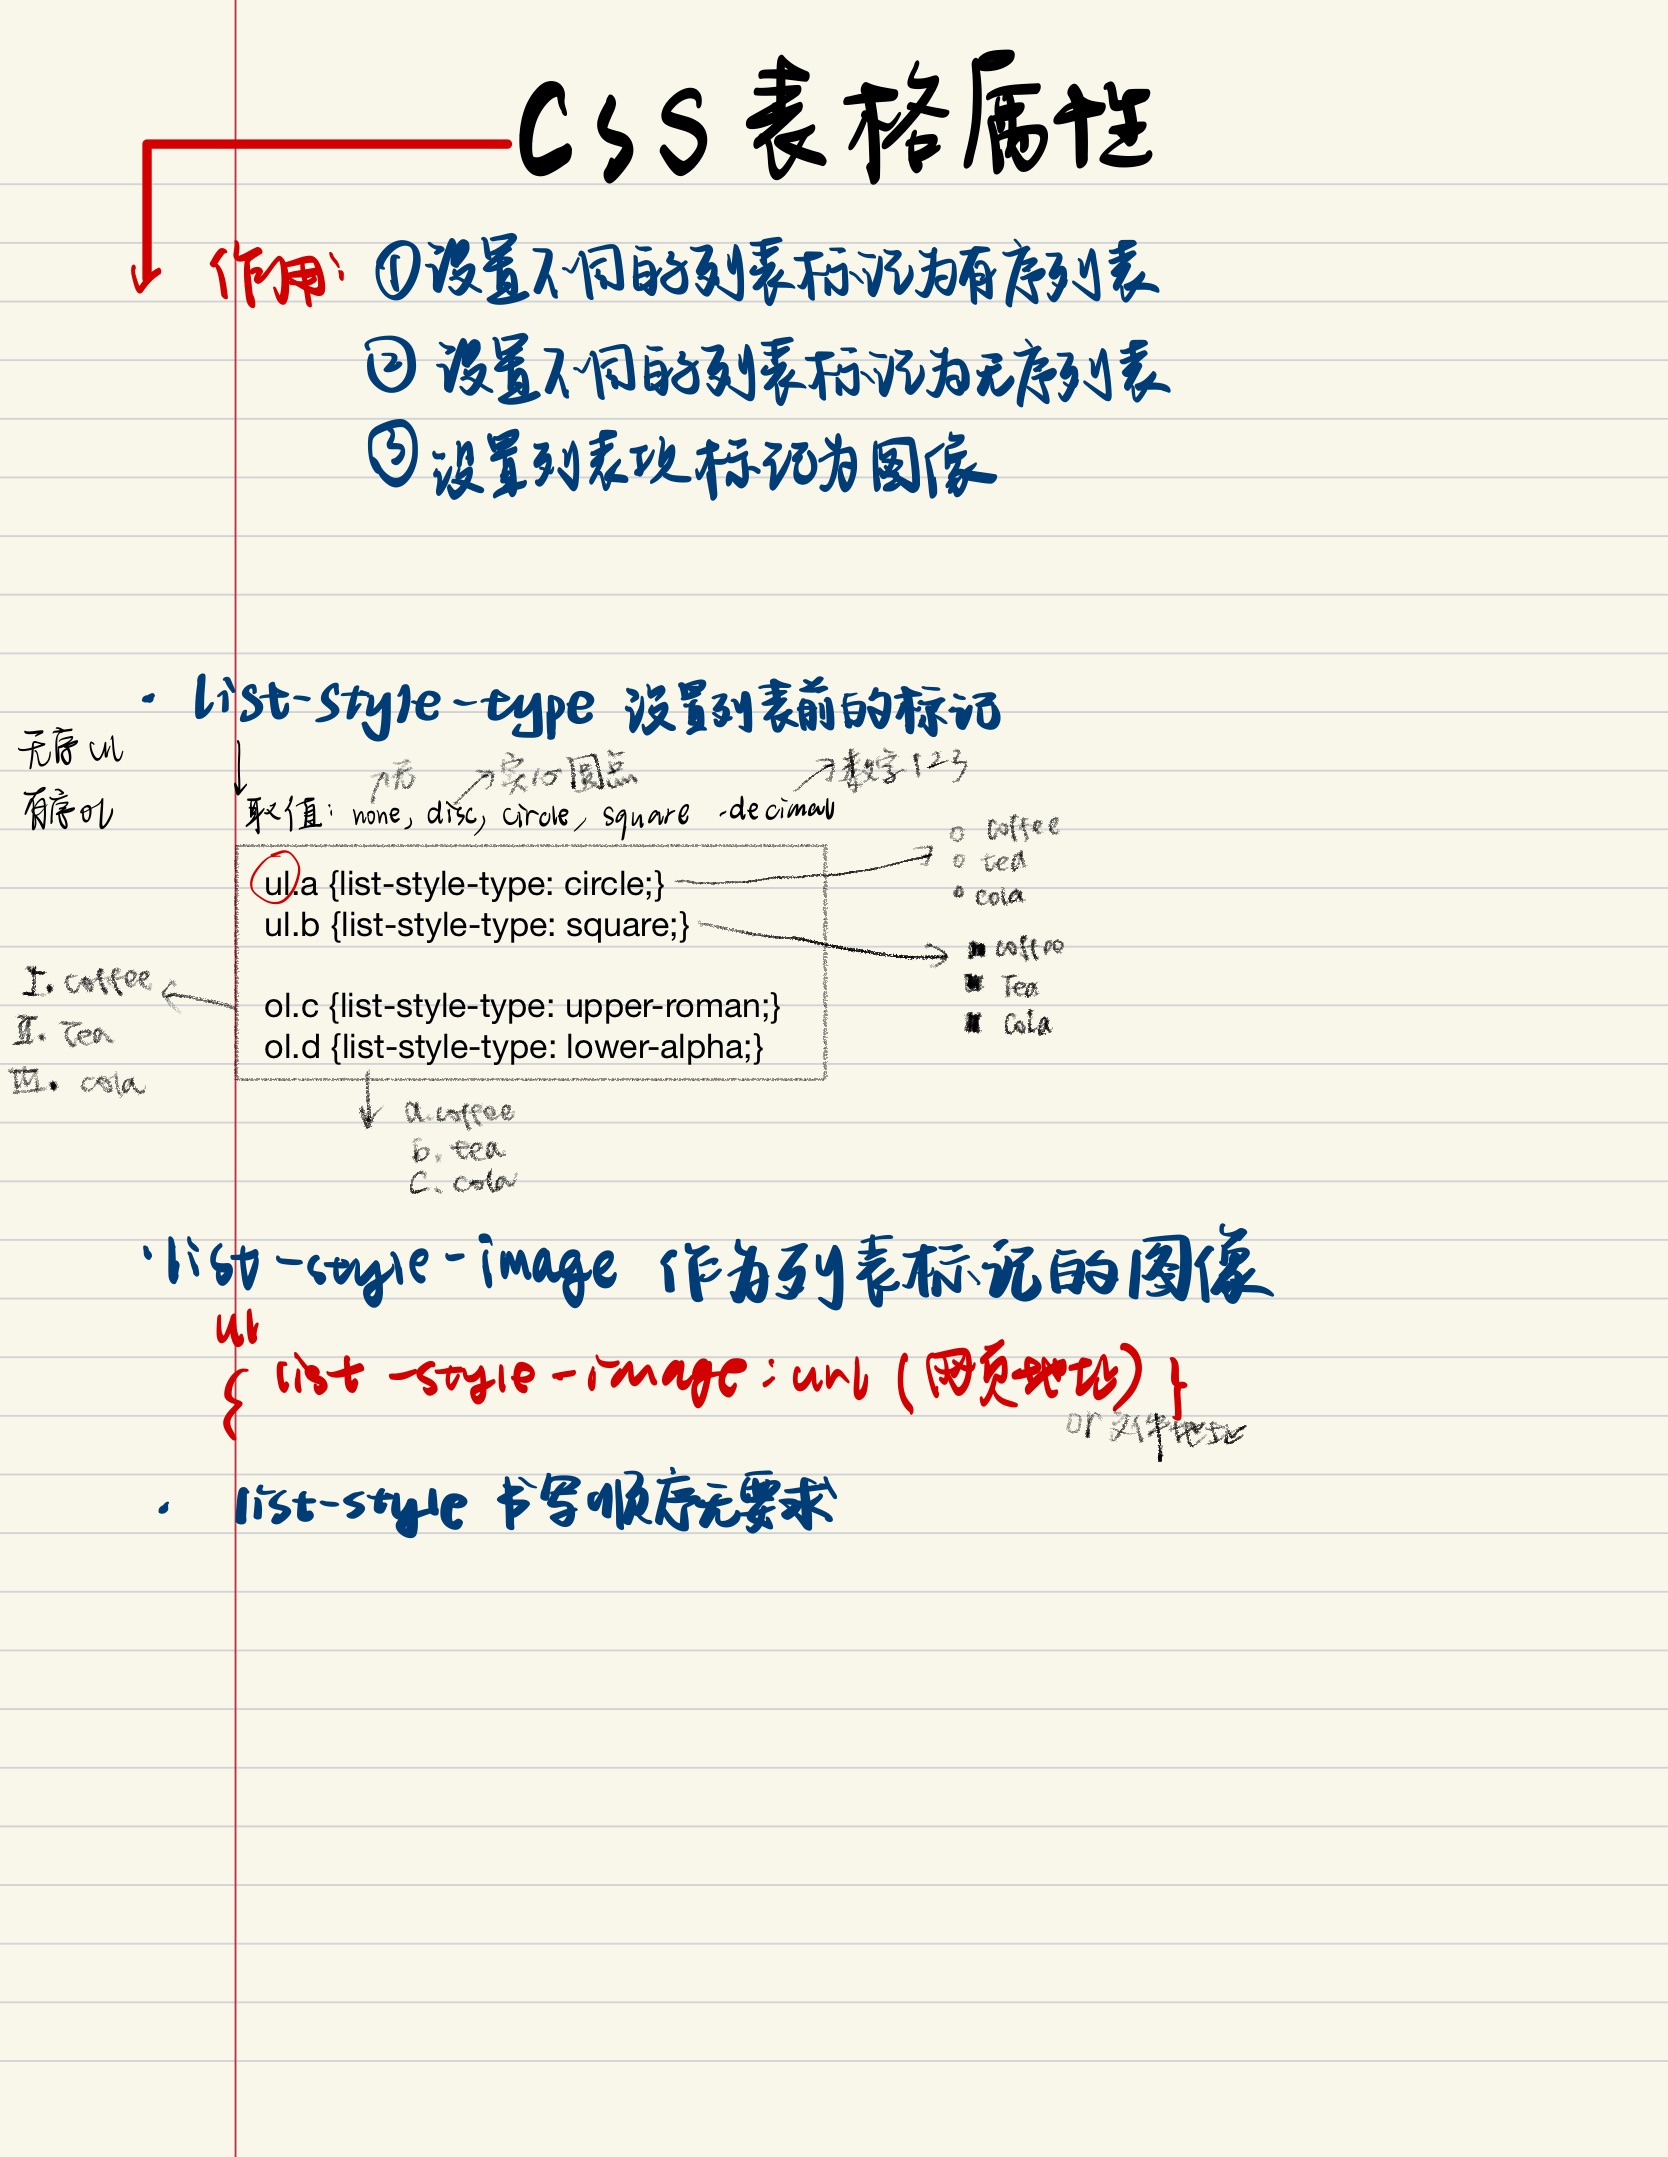 CSS 表格属性
作用: ①设置不同的列表标记为有序列表
② 设置不同的列表标记为无序列表
③ 设置列表项标记为图像
· list-style-type 设置列表前的标记
无序 ul
有序 ol
否 实心圆点 数字123
取值: none, disc, circle, square -decimal
ul.a {list-style-type: circle;}
ul.b {list-style-type: square;}
ol.c {list-style-type: upper-roman;}
ol.d {list-style-type: lower-alpha;}
○ coffee
○ tea
○ cola
■ coffee
■ Tea
■ Cola
I. coffee
II. Tea
III. cola
a. coffee
b. tea
c. cola
· list-style-image 作为列表标记的图像
ul
{ list-style-image: url (网页地址) }
or 文件地址
· list-style 书写顺序无要求